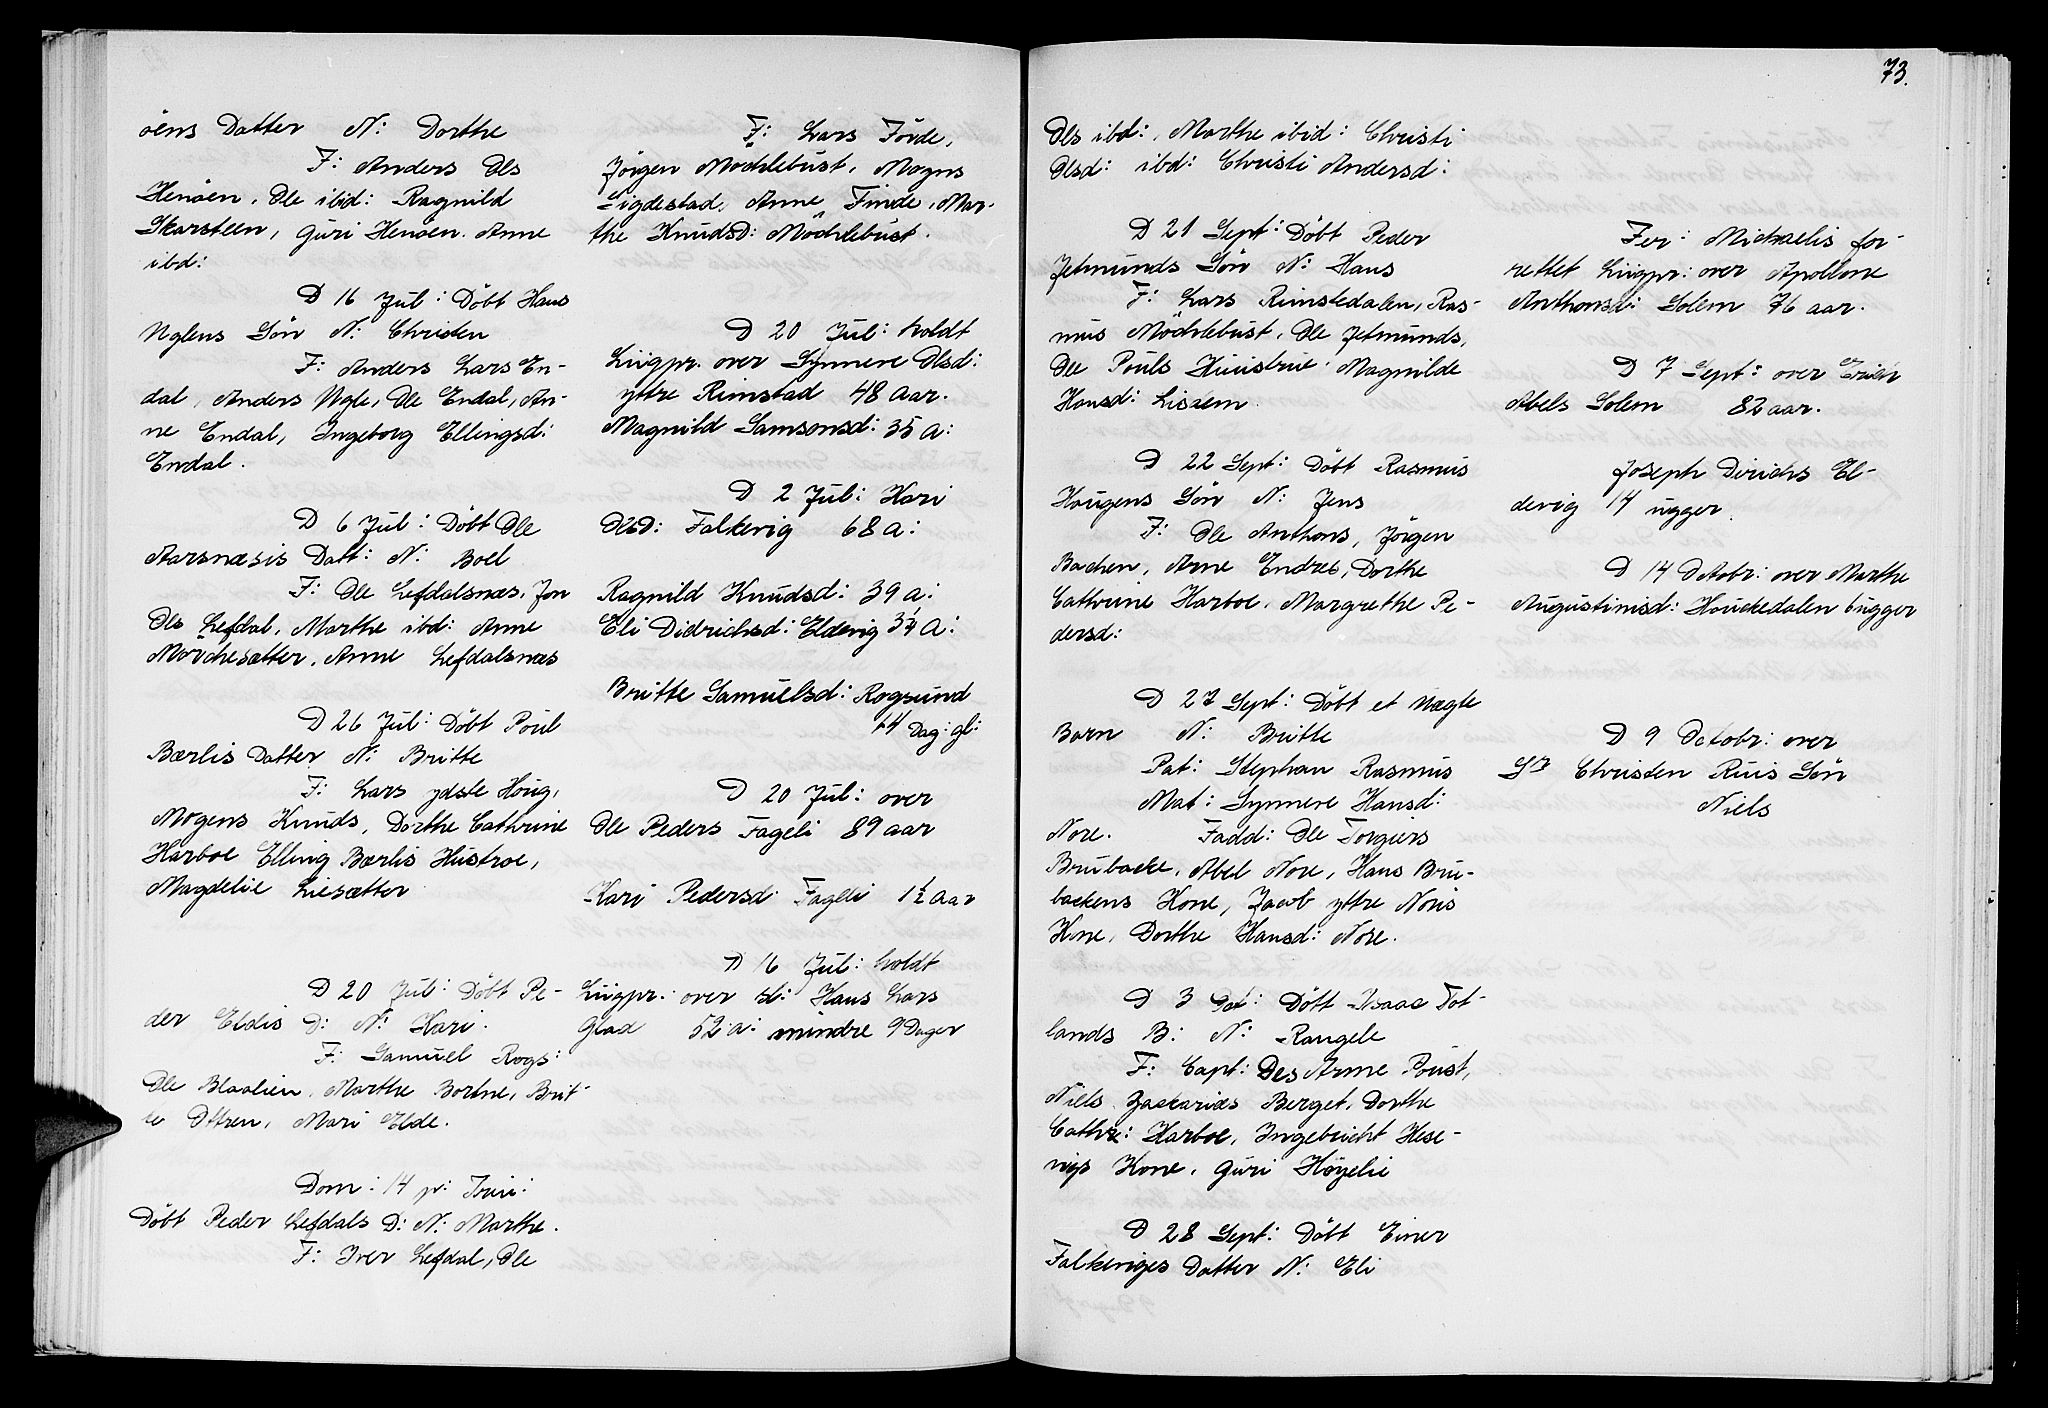 öens Datter N: Dorthe
F: Anders Ols
Henöen, Ole ibid: Ragnild
Skarsteen, Guri Henöen. Anne
ibd:
D 16 Jul: Döbt Hans
Nglens Sön N: Christen
F: Anders Lars En-
dal, Anders Ngle, Ole Endal, An-
ne Endal, Ingeborg Ellingsd:
Endal.
D 6 Jul: Döbt Ole
Aarsnæsis Datt: N: Boel
F: Ole Lefdalsnæs, Jon
Ols Lefdal, Marthe ibd: Anne
Morchesætter, Anne Lefdalsnæs
D 26 Jul: Döbt Poul
Bærlis Datter N: Britte
F: Lars ydste Houg,
Mogens Knuds, Dorthe Cathrine
Harboe Elling Bærlis Hustroe,
Magdelie Liesætter
D 20 Jul: Döbt Pe-
der Eldis D: N: Kari.
F: Samuel Rogs:
Ole Blaalien, Marthe Bortne, Brit-
te Ottren, Mari Elde.
Dom: 14 p: Trin:
Döbt Peder Lefdals D: N: Marthe.
F: Iver Lefdal, Ole
F: Lars Förde,
Jörgen Mochlebust, Mogns
Sigdestad, Anne Finde, Mar-
the Knudsd: Möchlebust.
D 20 Jul: holdt
Liigpr. over Synnere Olsd:
yttre Rimstad 48 Aar.
Magnild Samsonsd: 35 A:
D 2 Jul: Kari
Olsd: Falkevig 68 A:
Ragnild Knudsd: 39 A:
Eli Didrichsd: Eldevig 3¼ A:
Britte Samuelsd: Rogsund
14 Dag: gl:
D 20 Jul: over
Ole Peders Fageli 89 aar
Kari Pedersd: Fageli 1½ Aar
D 16 Jul: holdt
Liigpr: over sl: Hans Lars
Glad 52 a: mindre 9 Dager
73.
Ols ibd:, Marthe ibid: Christi
Olsd: ibd: Christi Andersd:
D 21 Sept: Döbt Peder
Jetmunds Sön N: Hans
F: Lars Rimstedalen, Ras-
mus Möchlebust, Ole Jetmunds,
Ole Pouls Huustrue, Magnilde
Hansd: Lissem.
D 22 Sept: Döbt Rasmus
Hougens Sön N: Jens
F: Ole Anthons, Jörgen
Bachen, Arne Endres, Dorthe
Cathrine Harboe, Margrethe Pe-
dersd:
D 27 Sept: Döbt et Uægte
Barn N: Britte
Pat: Stephan Rasmus
Mat: Synnere Hansd:
Nore. Fadd: Ole Torgiers
Brubacke, Abel Nore, Hans Bru-
backens Kone, Jacob yttre Noris
Kone, Dorthe Hansd: Nore.
D 3 Oct: Döbt Isaac Tot-
lands B: N: Rangele
F: Capt: Des Arme Poust,
Niels Zackarias Berget, Dorthe
Cathr: Harboe, Ingebricht Hese-
vigs Kone, Guri Høyelie
D 28 Sept: Döbt Einer
Falkeviges Datter N: Eli
Fer: Michaelis for-
rettet Liigpr: over Apollone
Anthonsd: Solem 76 aar.
D 7 Sept: over Erich
Abels Solem 82 aar.
Joseph Dirichs El-
devig 14 ugger.
D 14 Octobr: over Marthe
Augustinisd: Houckedalen 6 ugger
D 9 Octobr: over
Sr Christen Ruis Sön
Niels